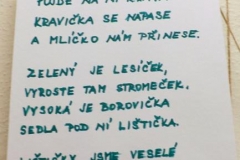 KRAVIČKA SE NAPASE
A MLÍČKO NÁM PŘINESE.
ZELENÝ JE LESÍČEK,
VYROSTE TAM STROMEČEK,
VYSOKÁ JE BOROVIČKA
SEDLA POD NÍ LIŠTIČKA.
JSME VESELÉ